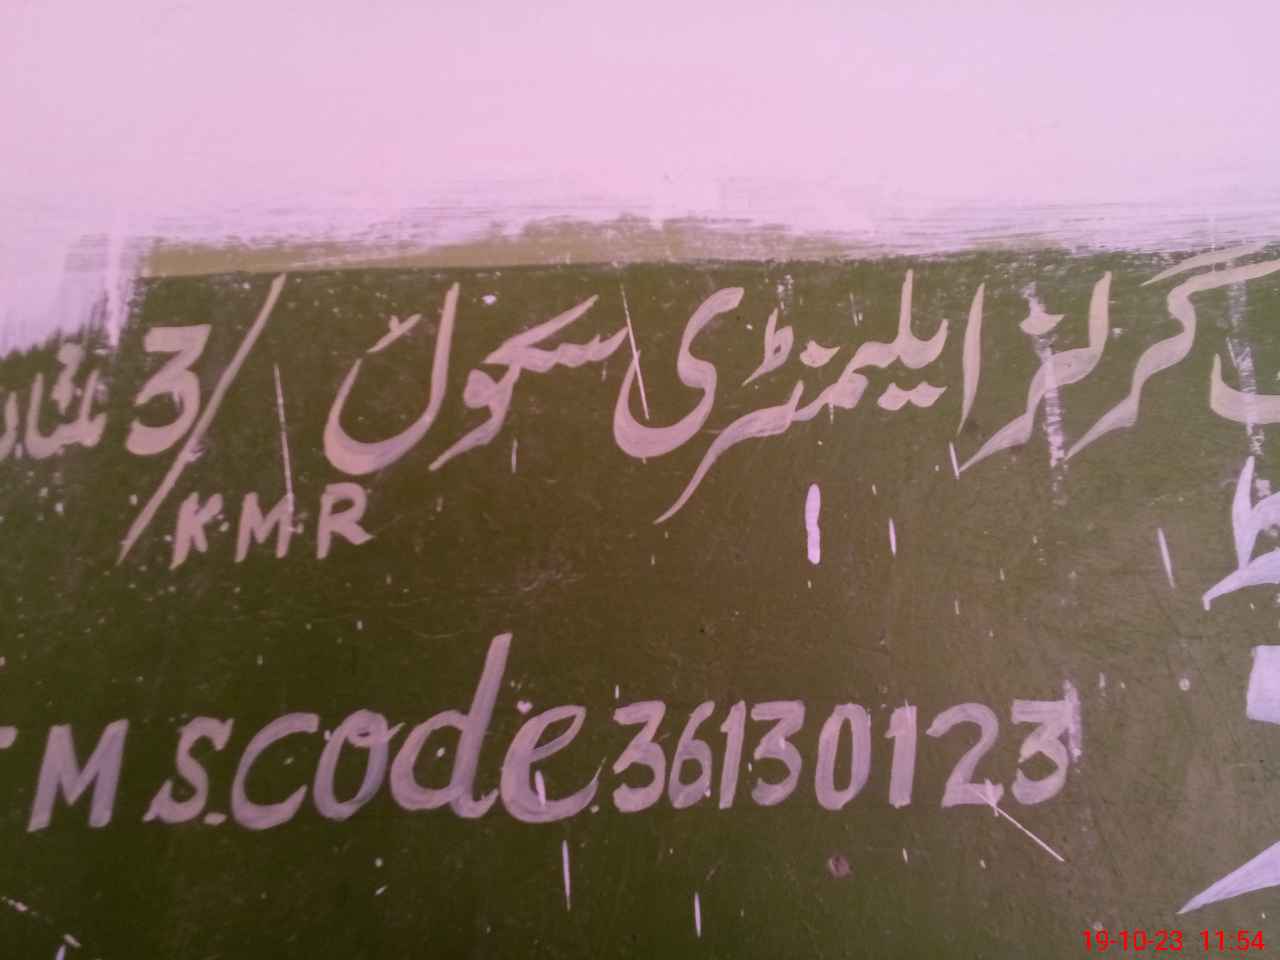 گرلز ایلیمنٹری سکول 3/KMR ملتان
M S.Code.36130123
19-10-23 11:54